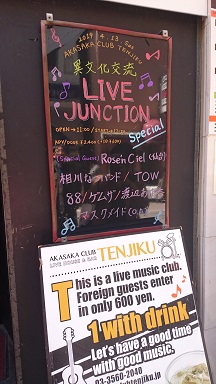 2019.4.13 Sat
AKASAKA CLUB TENJIKU
異文化交流
LIVE
JUNCTION
Special
OPEN 11:00 / START
(Special Guest) Rose'n Ciel
相川なつバンド / TOW
88 / ケムザ / 渡辺
マスクメイド
AKASAKA CLUB TENJIKU
LIVE HOUSE & BAR
This is a live music club.
Foreign guests enter
in only 600 yen.
1 with drink
Let's have a good time
with good music.
03-3560-2040
tenjiku.jp